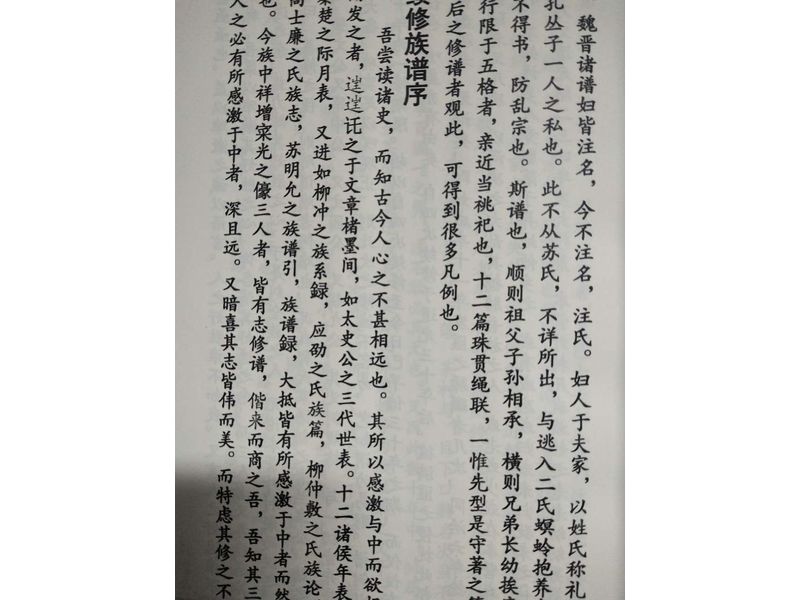 魏晋诸谱妇皆注名，今不注名，注氏。妇人于夫家，以姓氏称礼
孔丛子一人之私也。此不从苏氏，不详所出，与逃入二氏螟蛉抱养
不得书，防乱宗也。斯谱也，顺则祖父子孙相承，横则兄弟长幼挨
行限于五格者，亲近当祧祀也，十二篇珠贯绳联，一惟先型是守著之
后之修谱者观此，可得到很多凡例也。
修族谱序
吾尝读诸史，而知古今人心之不甚相远也。其所以感激与中而欲
而发之者，逵逵讬之于文章楮墨间，如太史公之三代世表。十二诸侯年表
秦楚之际月表，又进如柳冲之族系録，应劭之氏族篇，柳仲敷之氏族论
高士廉之氏族志，苏明允之族谱引，族谱録，大抵皆有所感激于中者而然
也。今族中祥增寀光之儫三人者，皆有志修谱，偕来而商之吾，吾知其三
人之必有所感激于中者，深且远。又暗喜其志皆伟而美。而特虑其修之不